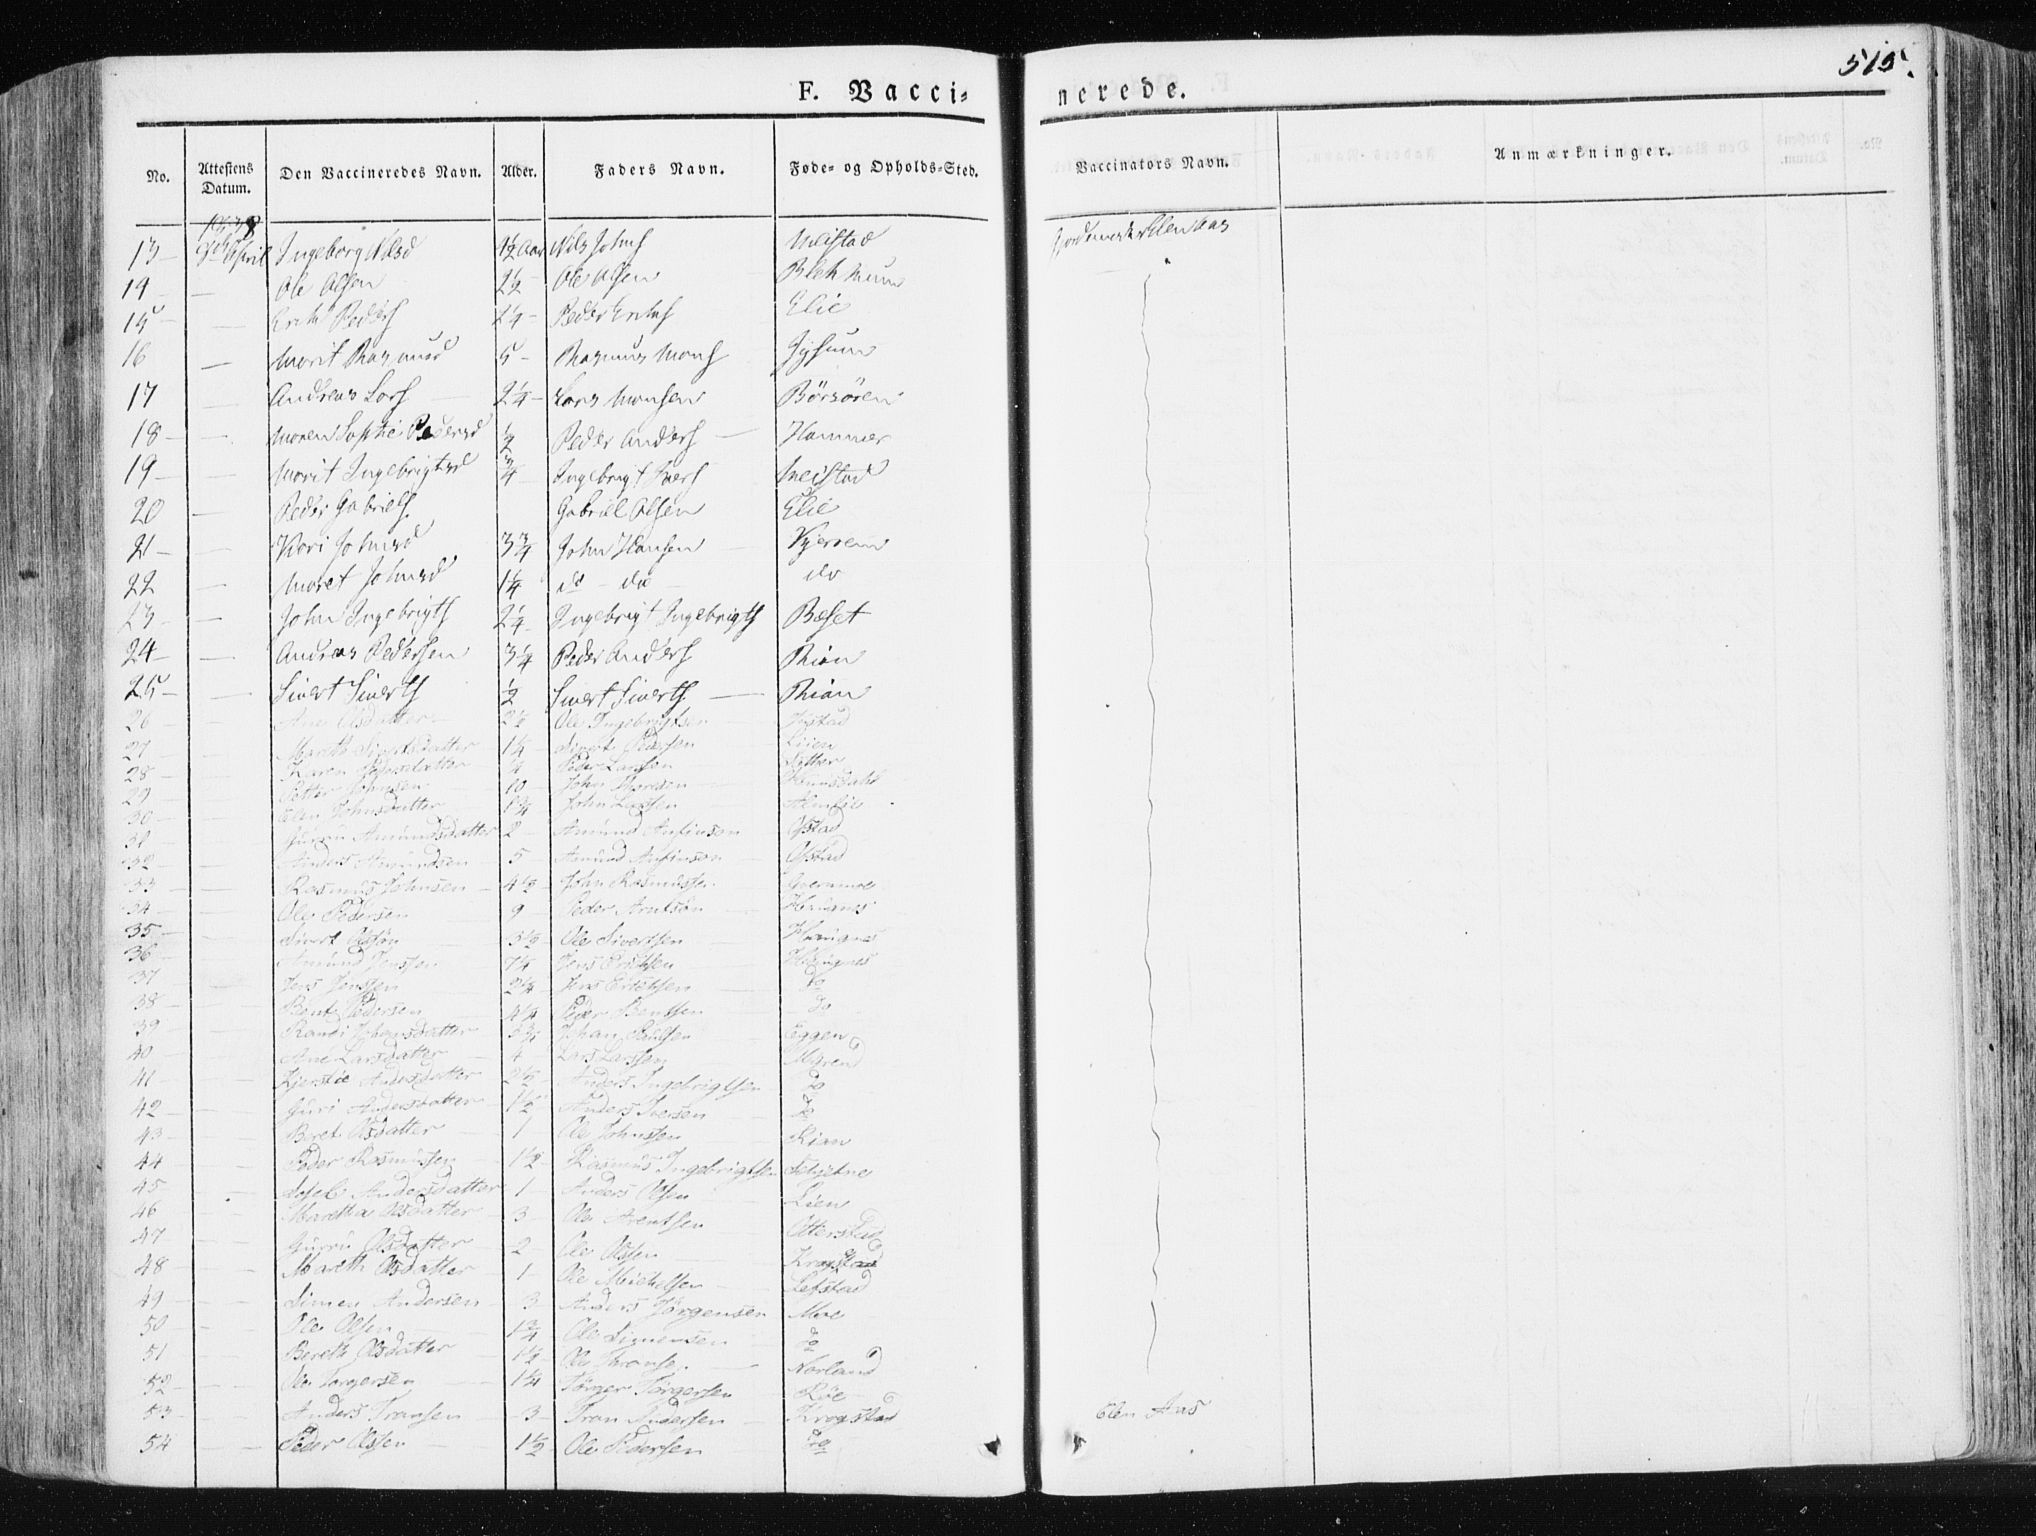 515.
F. Vacci=
nerede.
No. Attestens Datum. Den Vaccineredes Navn. Alder. Faders Navn. Føde- og Opholds-Sted. Vaccinators Navn. Anmærkninger.
1838
13 April Ingeborg Nilsd 1½ Aar Nils Johns Meistad Ellen Aas
14 — Ole Olsen 2½ Ole Olsen
15 — Erik Peders 2¼ Peder Eriks Elie
16 — Marit Rasmusd 5 — Rasmus Mons
17 — Andreas Lars 2¼ Lars Monsen Börsören
18 — Maren Sophie Pedersd ½ Peder Anders — Hammer
19 — Marit Ingebrigtsd ¾ Ingebrigt Ivers Meistad
20 — Peder Gabriels Gabriel Olsen Elie
21 — Kari Johnsd 3¾ John Hansen Kjerrem
22 — Maret Johnsd 1¼ do — do — do
23 — John Ingebrigts 2¼ Ingebrigt Ingebrigts Beset
24 — Andreas Pedersen 3¼ Peder Anders Rian
25 — Sivert Siverts ½ Sivert Siverts — Rian
26 — Ane Olsdatter 2½ Ole Ingebrigtsen
27 — Mareth Sivertsdatter 1¼ Sivert Pedersen Lien
28 — Karen Pedersdatter ¼ Peder Larsen
29 — Petter Johnsen 10 John Thoresen
30 — Elen Johnsdatter 1¾ John Larsen Almlie
31 — Guru Amundsdatter 2 Amund Anfinson Ofstad
32 — Anders Amundsen 5 Amund Anfinson Ofstad
33 — Rasmus Johnsen 4½ John Rasmussen
34 — Ole Pedersen 9 Peder Arntsøn Haugnes
35 — Sivert Olssøn 3½ Ole Sivertsen Haugnes
36 — Amund Jenssen 7¼ Jens Erichsen Haugnes
37 — Jens Jenssen 2¼ Jens Erichsen do
38 — Bent Pedersen 4¼ Peder Bentsen do
39 — Randi Johansdatter 3¾ Johan Eggen
40 — Ane Larsdatter 4 Lars Larssen
41 — Kjerstie Andersdatter 2½ Anders Ingebrigtsen do
42 — Guri Andersdatter 1½ Anders Iversen do
43 — Beret Olsdatter 1 Ole Johnssen Rian
44 — Peder Rasmusen 1½ Rasmus Ingebrigtsen
45 — Andersdatter 1 Anders Olsen Lien
46 — Maretha Olsdatter 3 Ole Arentsen Otterstad
47 — Gurru Olsdatter 2 Ole Olssen Krogstad
48 — Mareth Olsdatter 1 Ole Michelsen Lefstad
49 — Simen Andersen 3 Anders Jörgensen Moe
50 — Ole Olsen 1¾ Ole Simensen do
51 — Bereth Olsdatter 1½ Ole Norland
52 — Ole Torgersen 1¼ Törger Törgersen Röe
53 — Anders Transen 3 Tran Andersen Krogstad Elen Aas
54 — Peder Olssen 1½ Ole Pedersen do